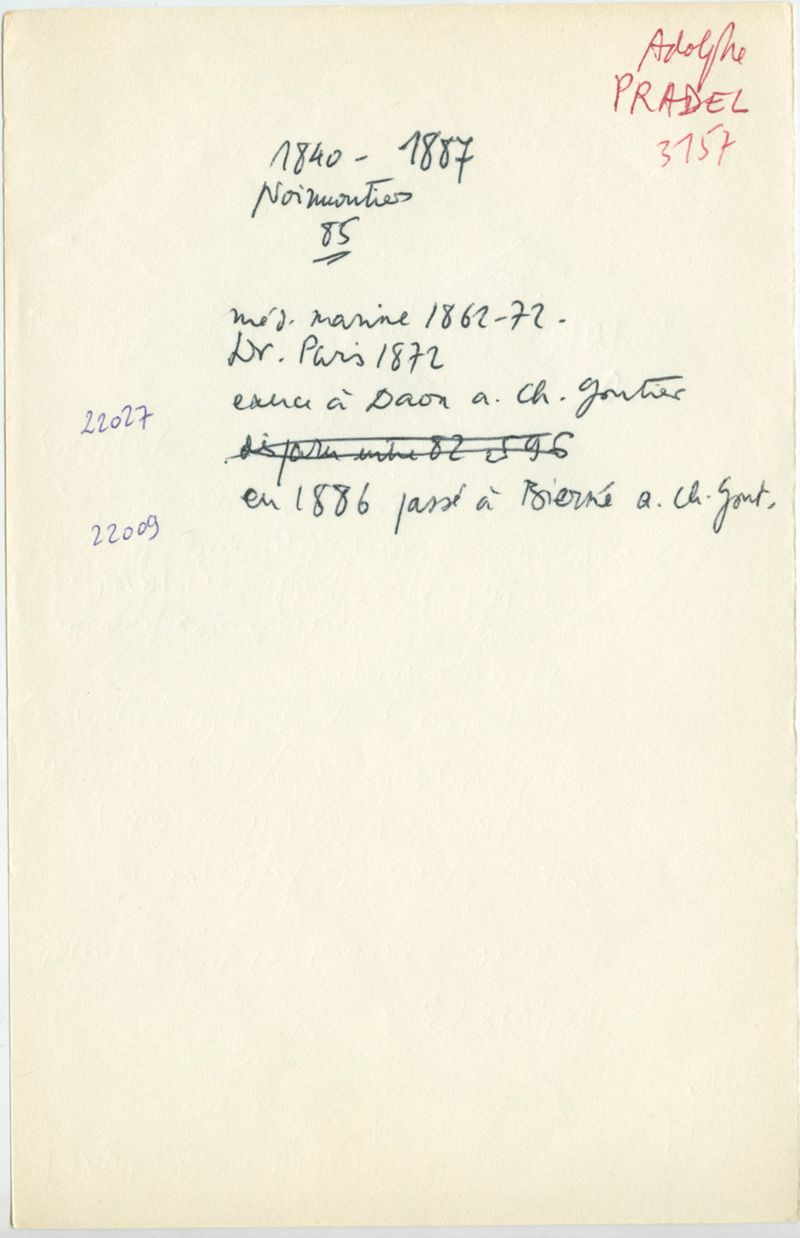 Adolphe
PRADEL
3157
1840 - 1887
Noirmoutiers
85
méd. marine 1862-72.
Dr. Paris 1872
exerce à Daon a. Ch. Gontier
22027
disparu entre 82 et 96
en 1886 passé à Bierné a. Ch. Gont.
22009